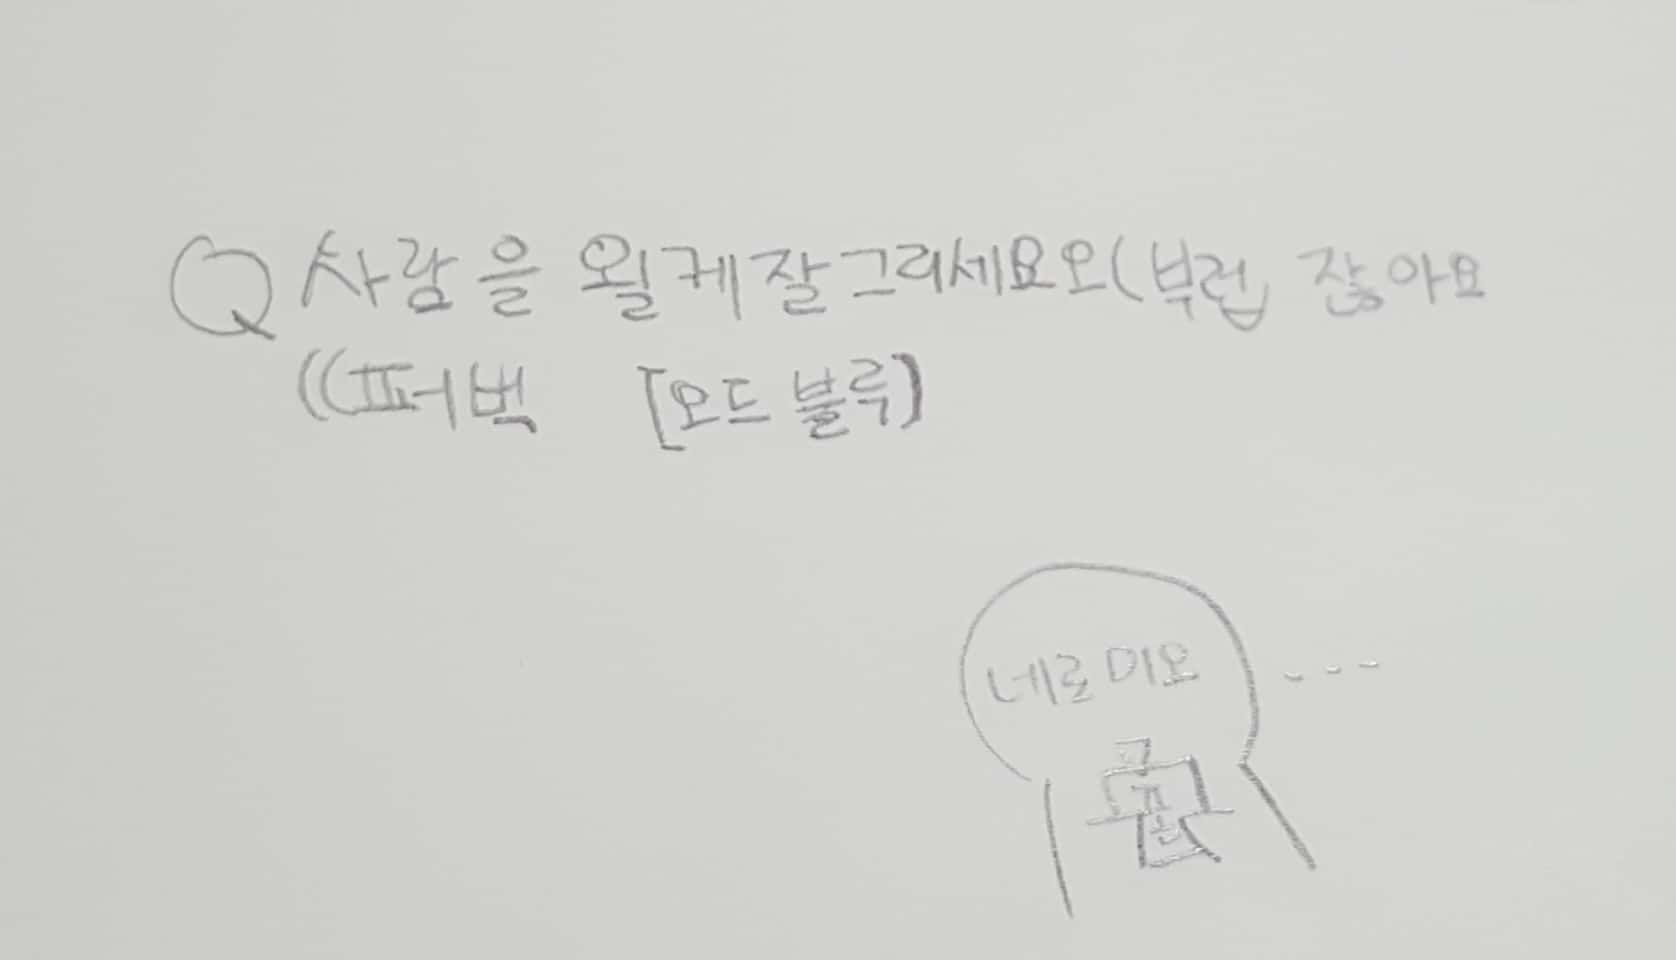 Q 사람을 욀케잘그리세요오(부럽잖아요
((퍼벅 [오드블루]
네로미오